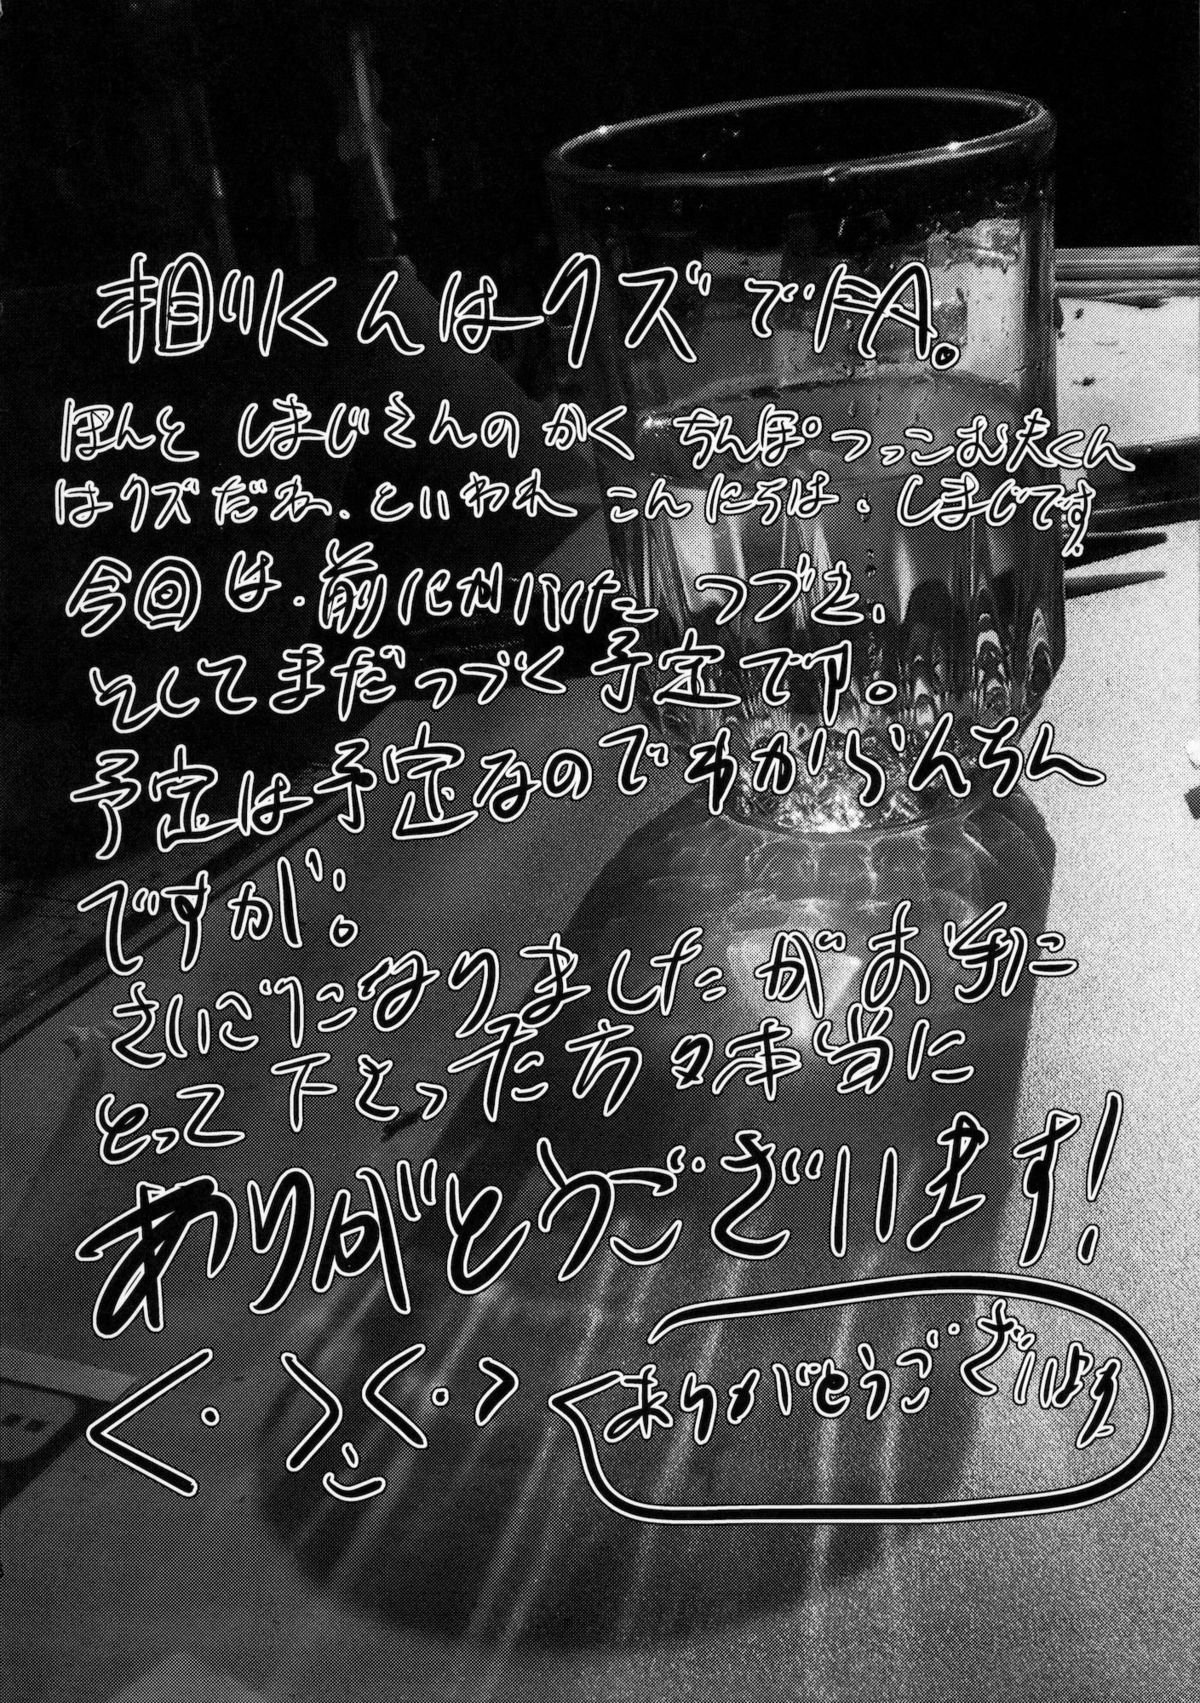 相川くんはクズでFA。
ほんと しまじさんのかく ちんぽつっこむ夫くん
はクズだね、といわれ こんにちは、しまじです
今回は、前にかいた つづき、
そしてまだつづく予定です。
予定は予定なのでわからんちん
ですが。
さいごになりましたがお手に
とって下さった方々本当に
ありがとうございます!
<・ ><・>
ありがとうございまう